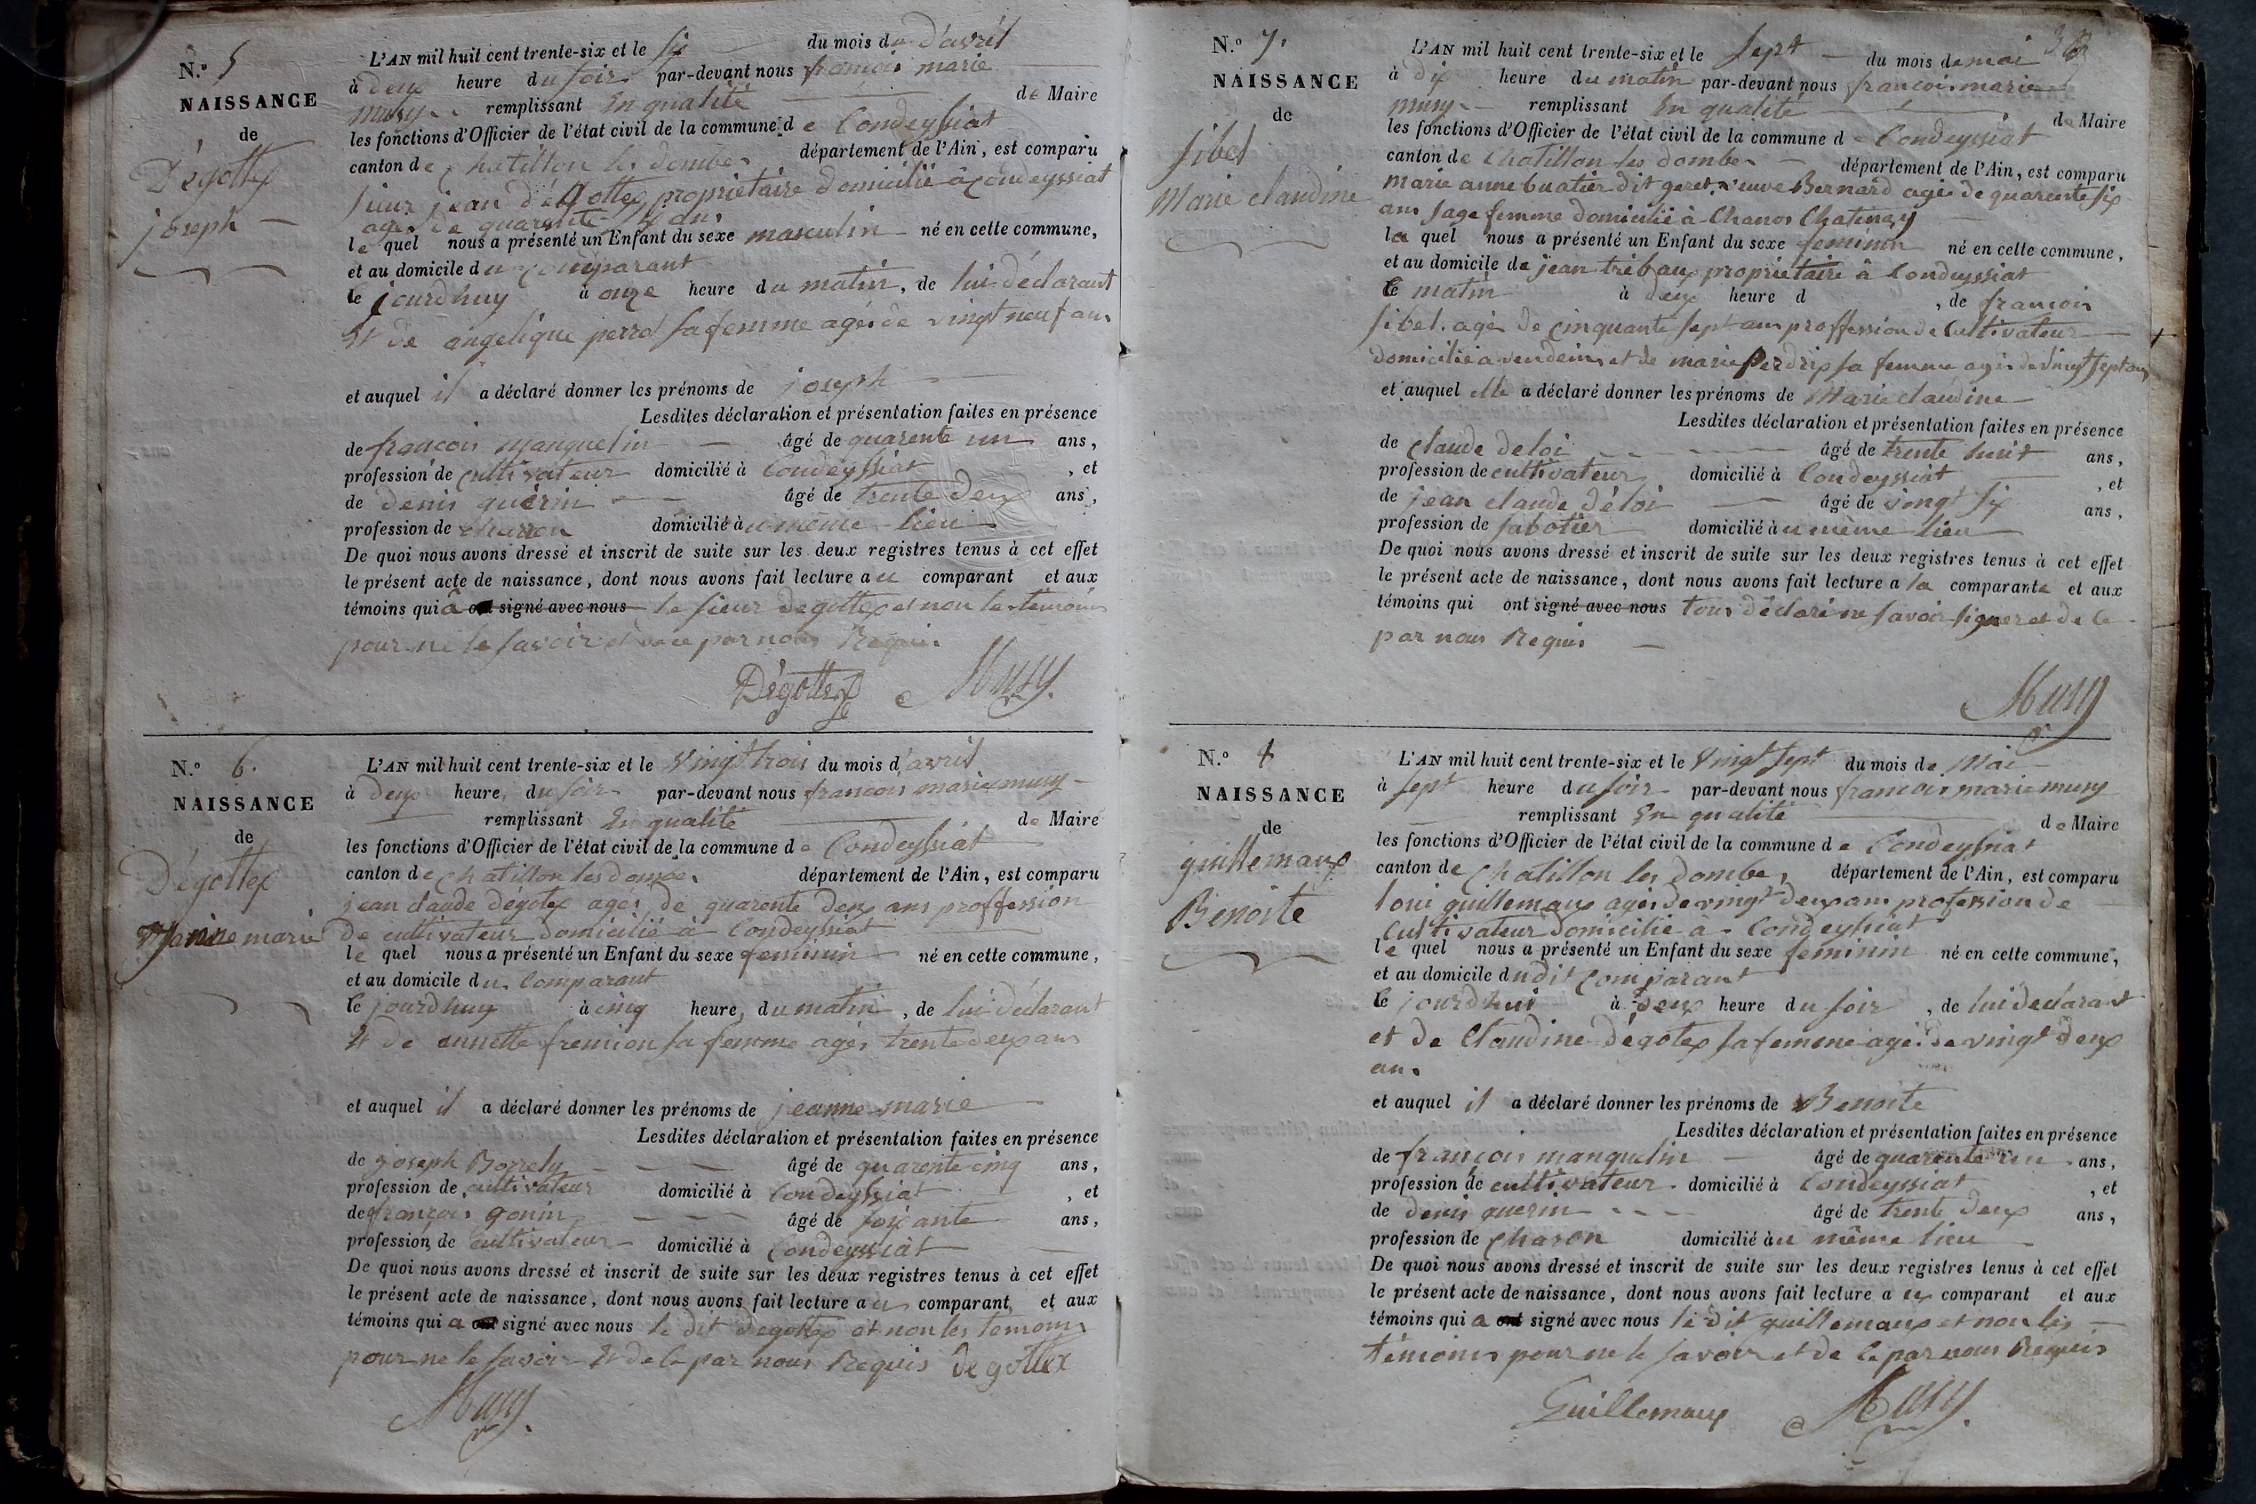 N.° 5
NAISSANCE
de
Dégottex
joseph
L'AN mil huit cent trente-six et le six du mois d'avril
à deux heure du soir par-devant nous françois marie
musy remplissant En qualité de Maire
les fonctions d'Officier de l'état civil de la commune de Condeyssiat
canton de chatillon les dombes département de l'Ain, est comparu
sieur jean dégottex propriétaire domicilié à Condeyssiat
agé de quarante
le quel nous a présenté un Enfant du sexe masculin né en cette commune,
et au domicile du comparant
le jourdhuy à onze heure du matin, de lui déclarant
Et de angelique perret sa femme agée de vingt neuf ans
et auquel il a déclaré donner les prénoms de joseph
Lesdites déclaration et présentation faites en présence
de françois manquelin âgé de quarente un ans,
profession de cultivateur domicilié à Condeyssiat, et
de denis guérin âgé de trente deux ans,
profession de charron domicilié au même lieu
De quoi nous avons dressé et inscrit de suite sur les deux registres tenus à cet effet
le présent acte de naissance, dont nous avons fait lecture au comparant et aux
témoins qui à ont signé avec nous le sieur degottex et non les témoins
pour ne le savoir et de ce par nous Requis
Dégottex Musy
N.° 6.
NAISSANCE
de
Dégottex
Jeanne marie
L'AN mil huit cent trente-six et le vingt trois du mois d'avril
à deux heure, du soir par-devant nous francois marie musy
remplissant En qualité de Maire
les fonctions d'Officier de l'état civil de la commune de Condeyssiat
canton de chatillon les dombes département de l'Ain, est comparu
jean claude dégotex agés de quarente deux ans proffession
de cultivateur domicilié à Condeyssiat
le quel nous a présenté un Enfant du sexe feminin né en cette commune,
et au domicile du Comparant
le jourdhuy à cinq heure, du matin, de lui déclarant
Et de annette fremion sa femme agés trente deux ans
et auquel il a déclaré donner les prénoms de jeanne marie
Lesdites déclaration et présentation faites en présence
de joseph Borrely âgé de quarente cinq ans,
profession de cultivateur domicilié à Condeyssiat, et
de françois gonin âgé de soixante ans,
profession de cultivateur domicilié à Condeyssiat
De quoi nous avons dressé et inscrit de suite sur les deux registres tenus à cet effet
le présent acte de naissance, dont nous avons fait lecture au comparant et aux
témoins qui a ont signé avec nous le dit degottex et non les temoins
pour ne le savoir Et de ce par nous Requis de gottex
Musy
N.° 7.
NAISSANCE
de
sibel
Marie claudine
L'AN mil huit cent trente-six et le sept du mois de mai
à dix heure du matin par-devant nous francois marie
musy remplissant En qualité de Maire
les fonctions d'Officier de l'état civil de la commune de Condeyssiat
canton de chatillon les dombes département de l'Ain, est comparu
marie anne buatier dit geret veuve Bernard agée de quarente six
ans sage femme domicilié à Chanos Chatenay
la quel nous a présenté un Enfant du sexe feminin né en cette commune,
et au domicile de jean trébaux propriétaire à Condeyssiat
le matin à deux heure d , de francois
sibel. agé de cinquante sept ans proffession de cultivateur
domicilié a vandeins et de marie perdrix sa femme agée de vingt sept ans
et auquel elle a déclaré donner les prénoms de Marie claudine
Lesdites déclaration et présentation faites en présence
de claude deloi âgé de trente huit ans,
profession de cultivateur domicilié à Condeyssiat, et
de jean claude déloi âgé de vingt six ans,
profession de sabotier domicilié au même lieu
De quoi nous avons dressé et inscrit de suite sur les deux registres tenus à cet effet
le présent acte de naissance, dont nous avons fait lecture a la comparante et aux
témoins qui ont signé avec nous tous déclaré ne savoir signer et de ce
par nous Requis
Musy
N.° 8
NAISSANCE
de
guillemaux
Benoite
L'AN mil huit cent trente-six et le vingt sept du mois de Mai
à sept heure du soir par-devant nous francois marie musy
remplissant En qualité de Maire
les fonctions d'Officier de l'état civil de la commune de Condeyssiat
canton de chatillon les dombes, département de l'Ain, est comparu
loui guillemaux agés de vingt deux ans profession de
cultivateur domicilié à Condeyssiat
le quel nous a présenté un Enfant du sexe feminin né en cette commune,
et au domicile du dit Comparant
le jourdhui à deux heure du soir, de lui déclarant
et de Claudine dégotex sa femme agée de vingt deux
ans
et auquel il a déclaré donner les prénoms de Benoite
Lesdites déclaration et présentation faites en présence
de françois manquelin âgé de quarente un ans,
profession de cultivateur domicilié à Condeyssiat, et
de denis guerin âgé de trente deux ans,
profession de charon domicilié au même lieu
De quoi nous avons dressé et inscrit de suite sur les deux registres tenus à cet effet
le présent acte de naissance, dont nous avons fait lecture a ux comparant et aux
témoins qui a ont signé avec nous le dit guillemaux et non les
témoins pour ne le savoir et de ce par nous Requis
Guillemaux Musy